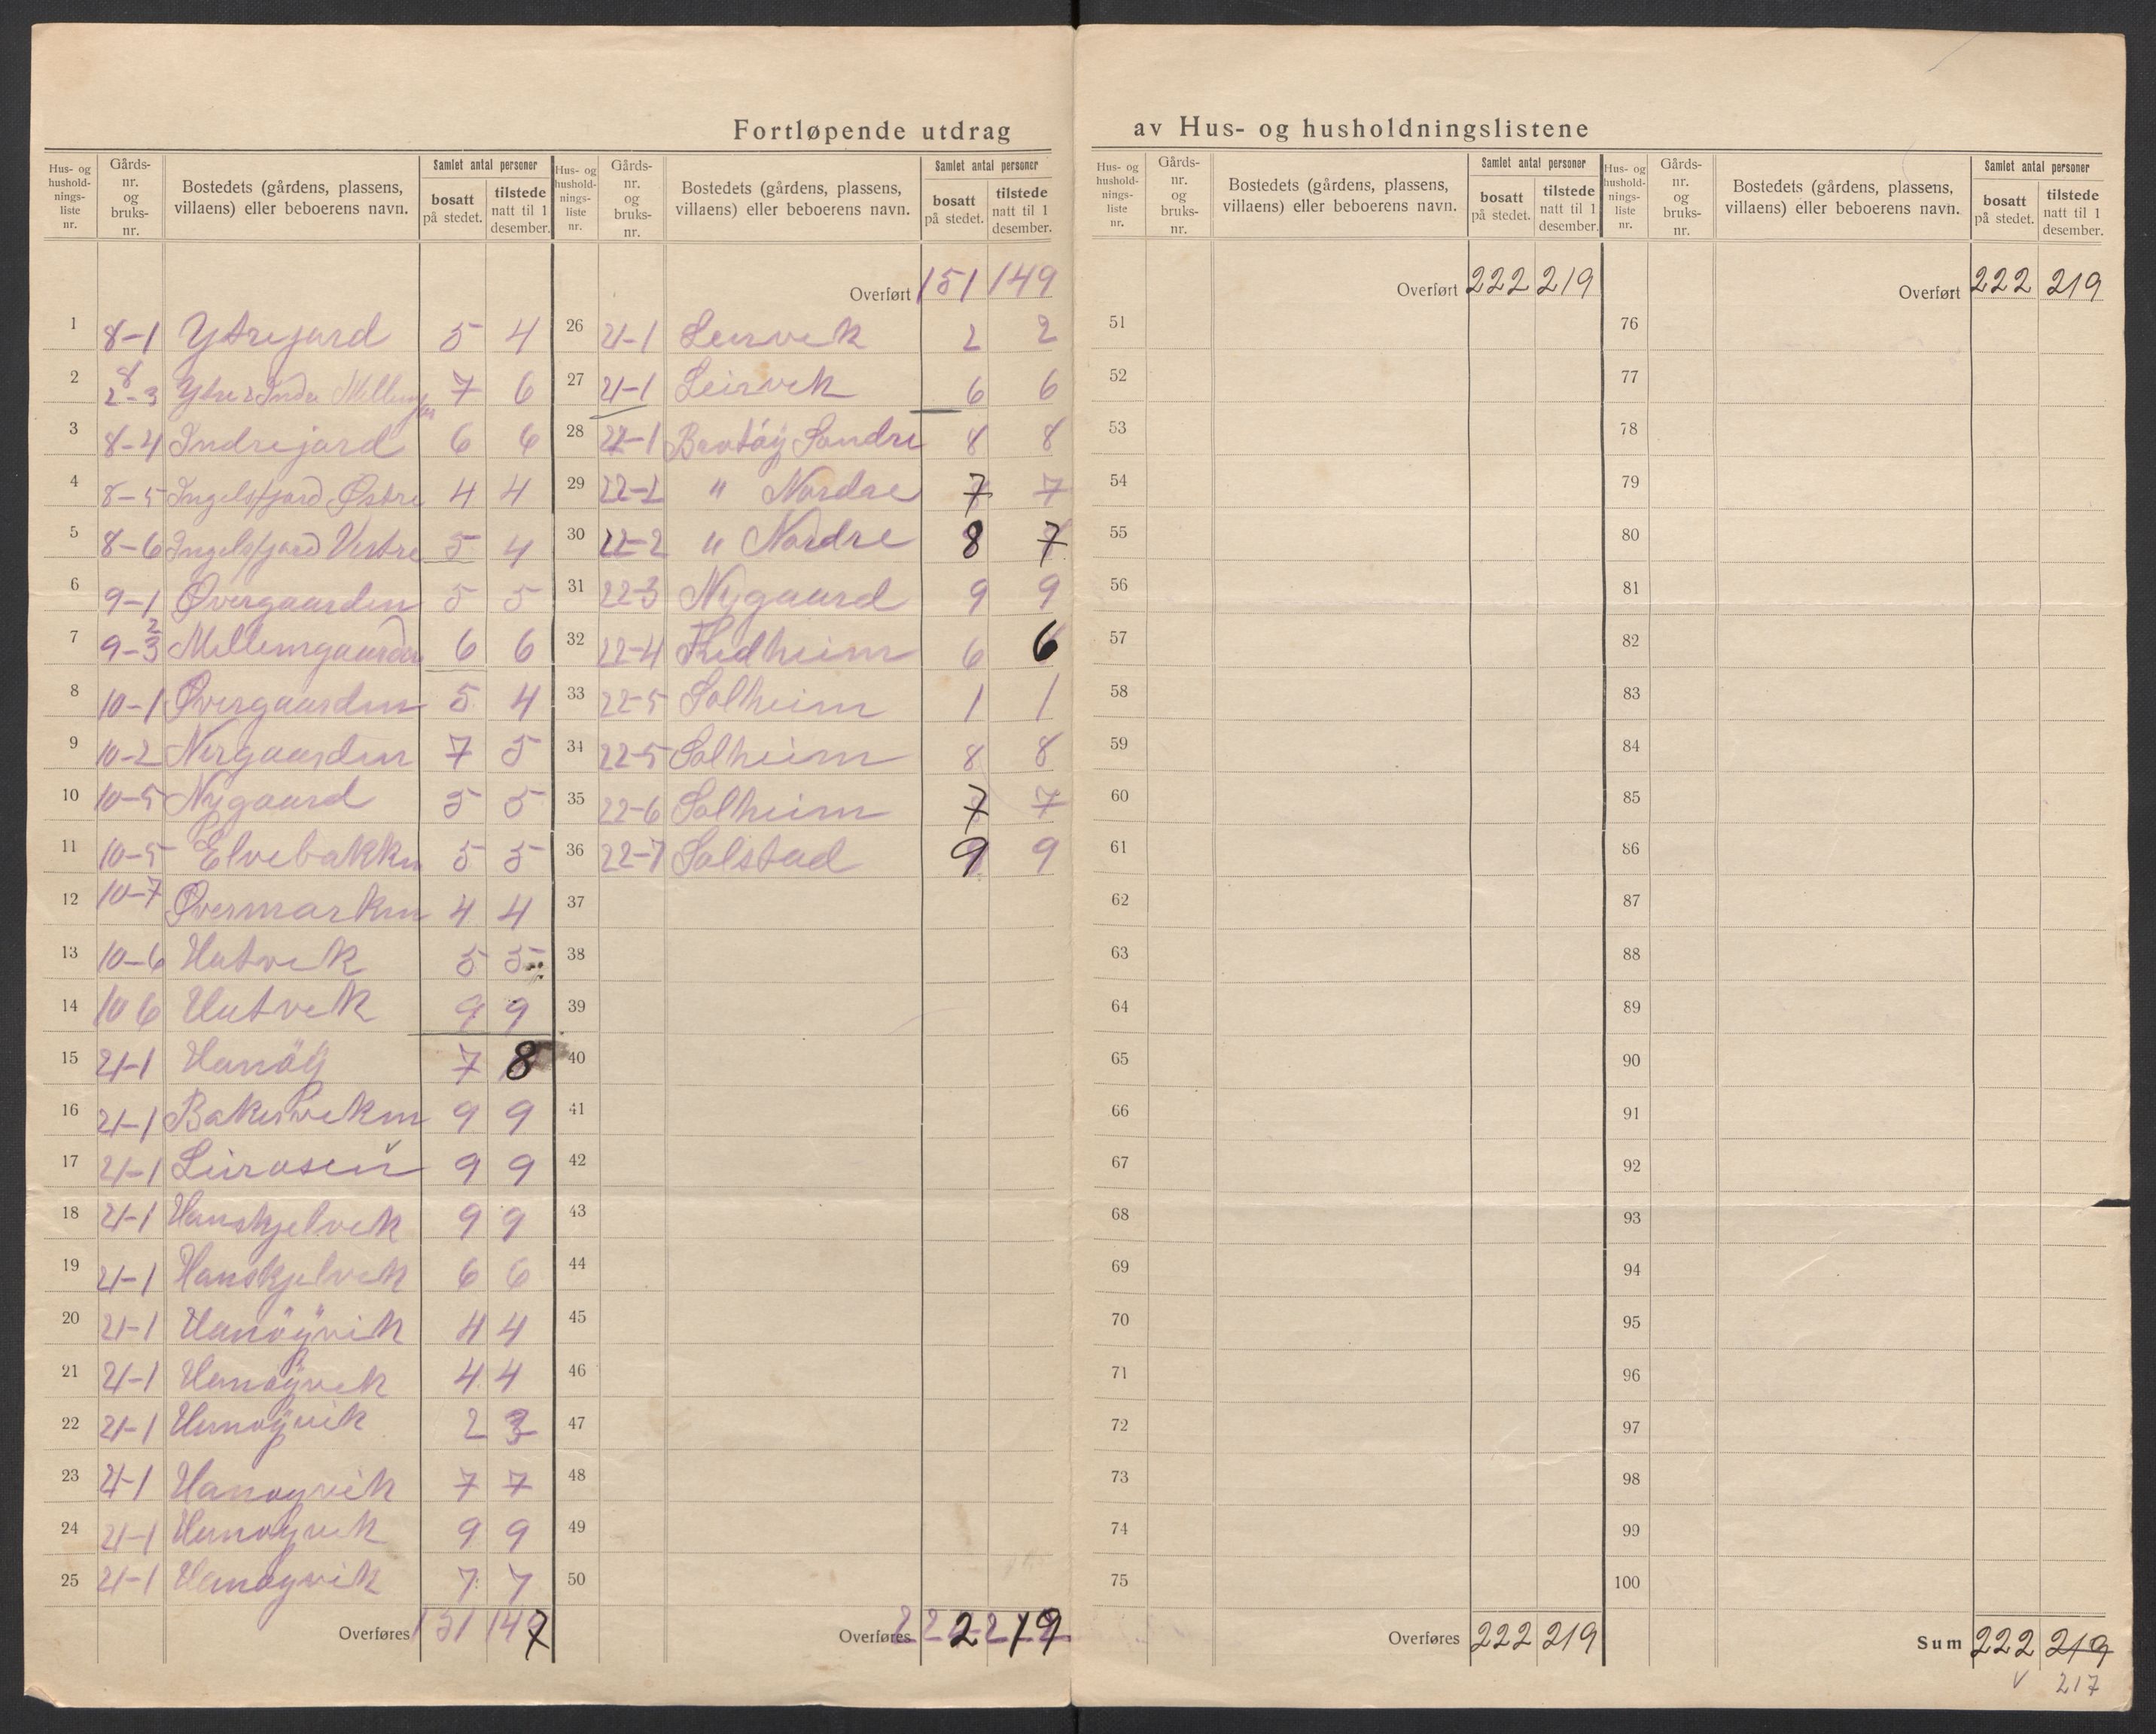 Fortløpende utdrag av Hus- og husholdningslistene
Hus- og hushold-nings-liste nr. | Gårds-nr. og bruks-nr. | Bostedets (gårdens, plassens, villaens) eller beboerens navn. | Samlet antal personer | bosatt på stedet. | tilstede natt til 1 desember.
1 8-1 Ytrejord 5 4
2 8 2-3 Ytre & Indre Mellemjord 7 6
3 8-4 Indrejord 6 6
4 8-5 Ingelsfjord Østre 4 4
5 8-6 Ingelsfjord Vestre 5 4
6 9-1 Øvergaarden 5 5
7 9-2 3 Mellemgaarden 6 6
8 10-1 Øvergaarden 5 4
9 10-2 Nergaarden 7 5
10 10-5 Nygaard 5 5
11 10-5 Elvebakken 5 5
12 10-7 Øvermarken 4 4
13 10-6 Hatvik 5 5
14 10 6 Hatvik 9 9
15 21-1 Hanöÿ 7 8
16 21-1 9 9
17 21-1 Leirosen 9 9
18 21-1 Hanskjelvik 9 9
19 21-1 Hanskjelvik 6 6
20 21-1 Hanöÿvik 4 4
21 21-1 Hanöÿvik 4 4
22 21-1 Hanøyvik 2 3
23 21-1 Hanøyvik 7 7
24 21-1 Hanøyvik 9 9
25 21-1 Hanøyvik 7 7
Overføres 151 147
Hus- og hushold-nings-liste nr. | Gårds-nr. og bruks-nr. | Bostedets (gårdens, plassens, villaens) eller beboerens navn. | Samlet antal personer | bosatt på stedet. | tilstede natt til 1 desember.
Overført 151 149
26 21-1 Leirvik 2 2
27 21-1 Leirvik 6 6
28 22-1 Brotöÿ Söndre 8 8
29 22-2 " Nordre 7 7
30 22-2 " Nordre 8 7
31 22-3 Nygaard 9 9
32 22-4 Fredheim 6 6
33 22-5 Solheim 1 1
34 22-5 Solheim 8 8
35 22-6 Solheim 7 7
36 22-7 Solstad 9 9
37
38
39
40
41
42
43
44
45
46
47
48
49
50
Overføres 222 219
Hus- og hushold-nings-liste nr. | Gårds-nr. og bruks-nr. | Bostedets (gårdens, plassens, villaens) eller beboerens navn. | Samlet antal personer | bosatt på stedet. | tilstede natt til 1 desember.
Overført 222 219
51
52
53
54
55
56
57
58
59
60
61
62
63
64
65
66
67
68
69
70
71
72
73
74
75
Overføres 222 219
Hus- og hushold-nings-liste nr. | Gårds-nr. og bruks-nr. | Bostedets (gårdens, plassens, villaens) eller beboerens navn. | Samlet antal personer | bosatt på stedet. | tilstede natt til 1 desember.
Overført 222 219
76
77
78
79
80
81
82
83
84
85
86
87
88
89
90
91
92
93
94
95
96
97
98
99
100
Sum 222 219
v 217